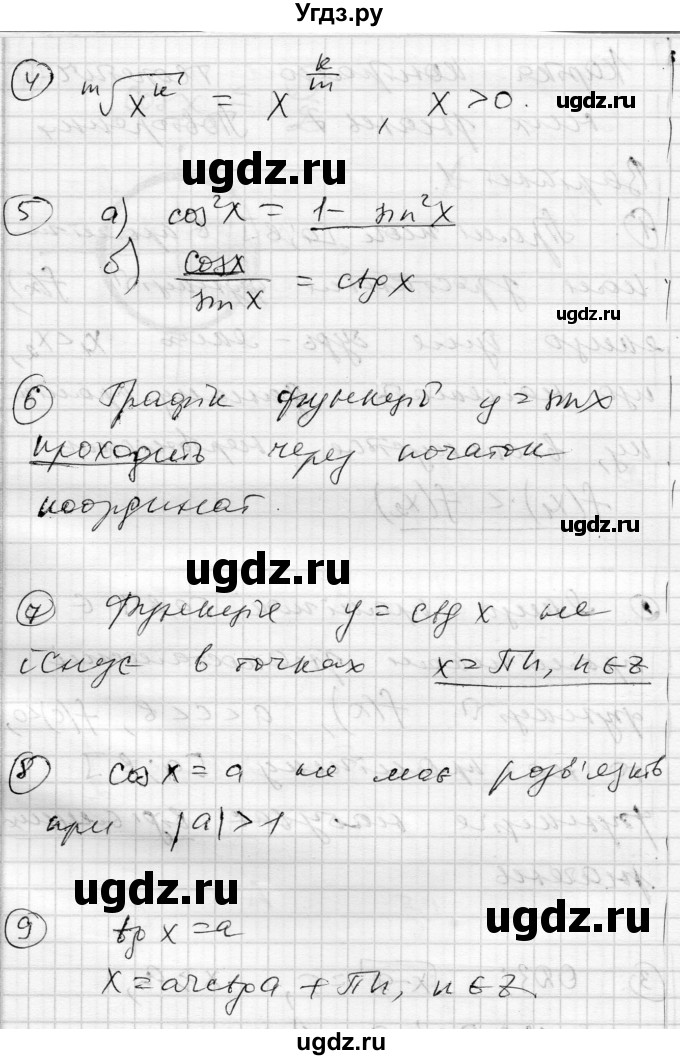 Угдз.ру
④ ᵐ√xᵏ = x^(k/m), x > 0.
ugdz.ru
ugdz.ru
⑤ а) cos²x = 1 - sin²x
ugdz.ru
б) cosx / sin x = ctg x
ugdz.ru
⑥ Графік функції y = sinx
проходить через початок
координат.
ugdz.ru
ugdz.ru
⑦ Функція y = ctg x не
існує в точках x = πn, n ∈ Z
ugdz.ru
⑧ cos x = a не має розв'язків
при |a| > 1
ugdz.ru
ugdz.ru
⑨ tg x = a
x = arctg a + πn, n ∈ Z
ugdz.ru